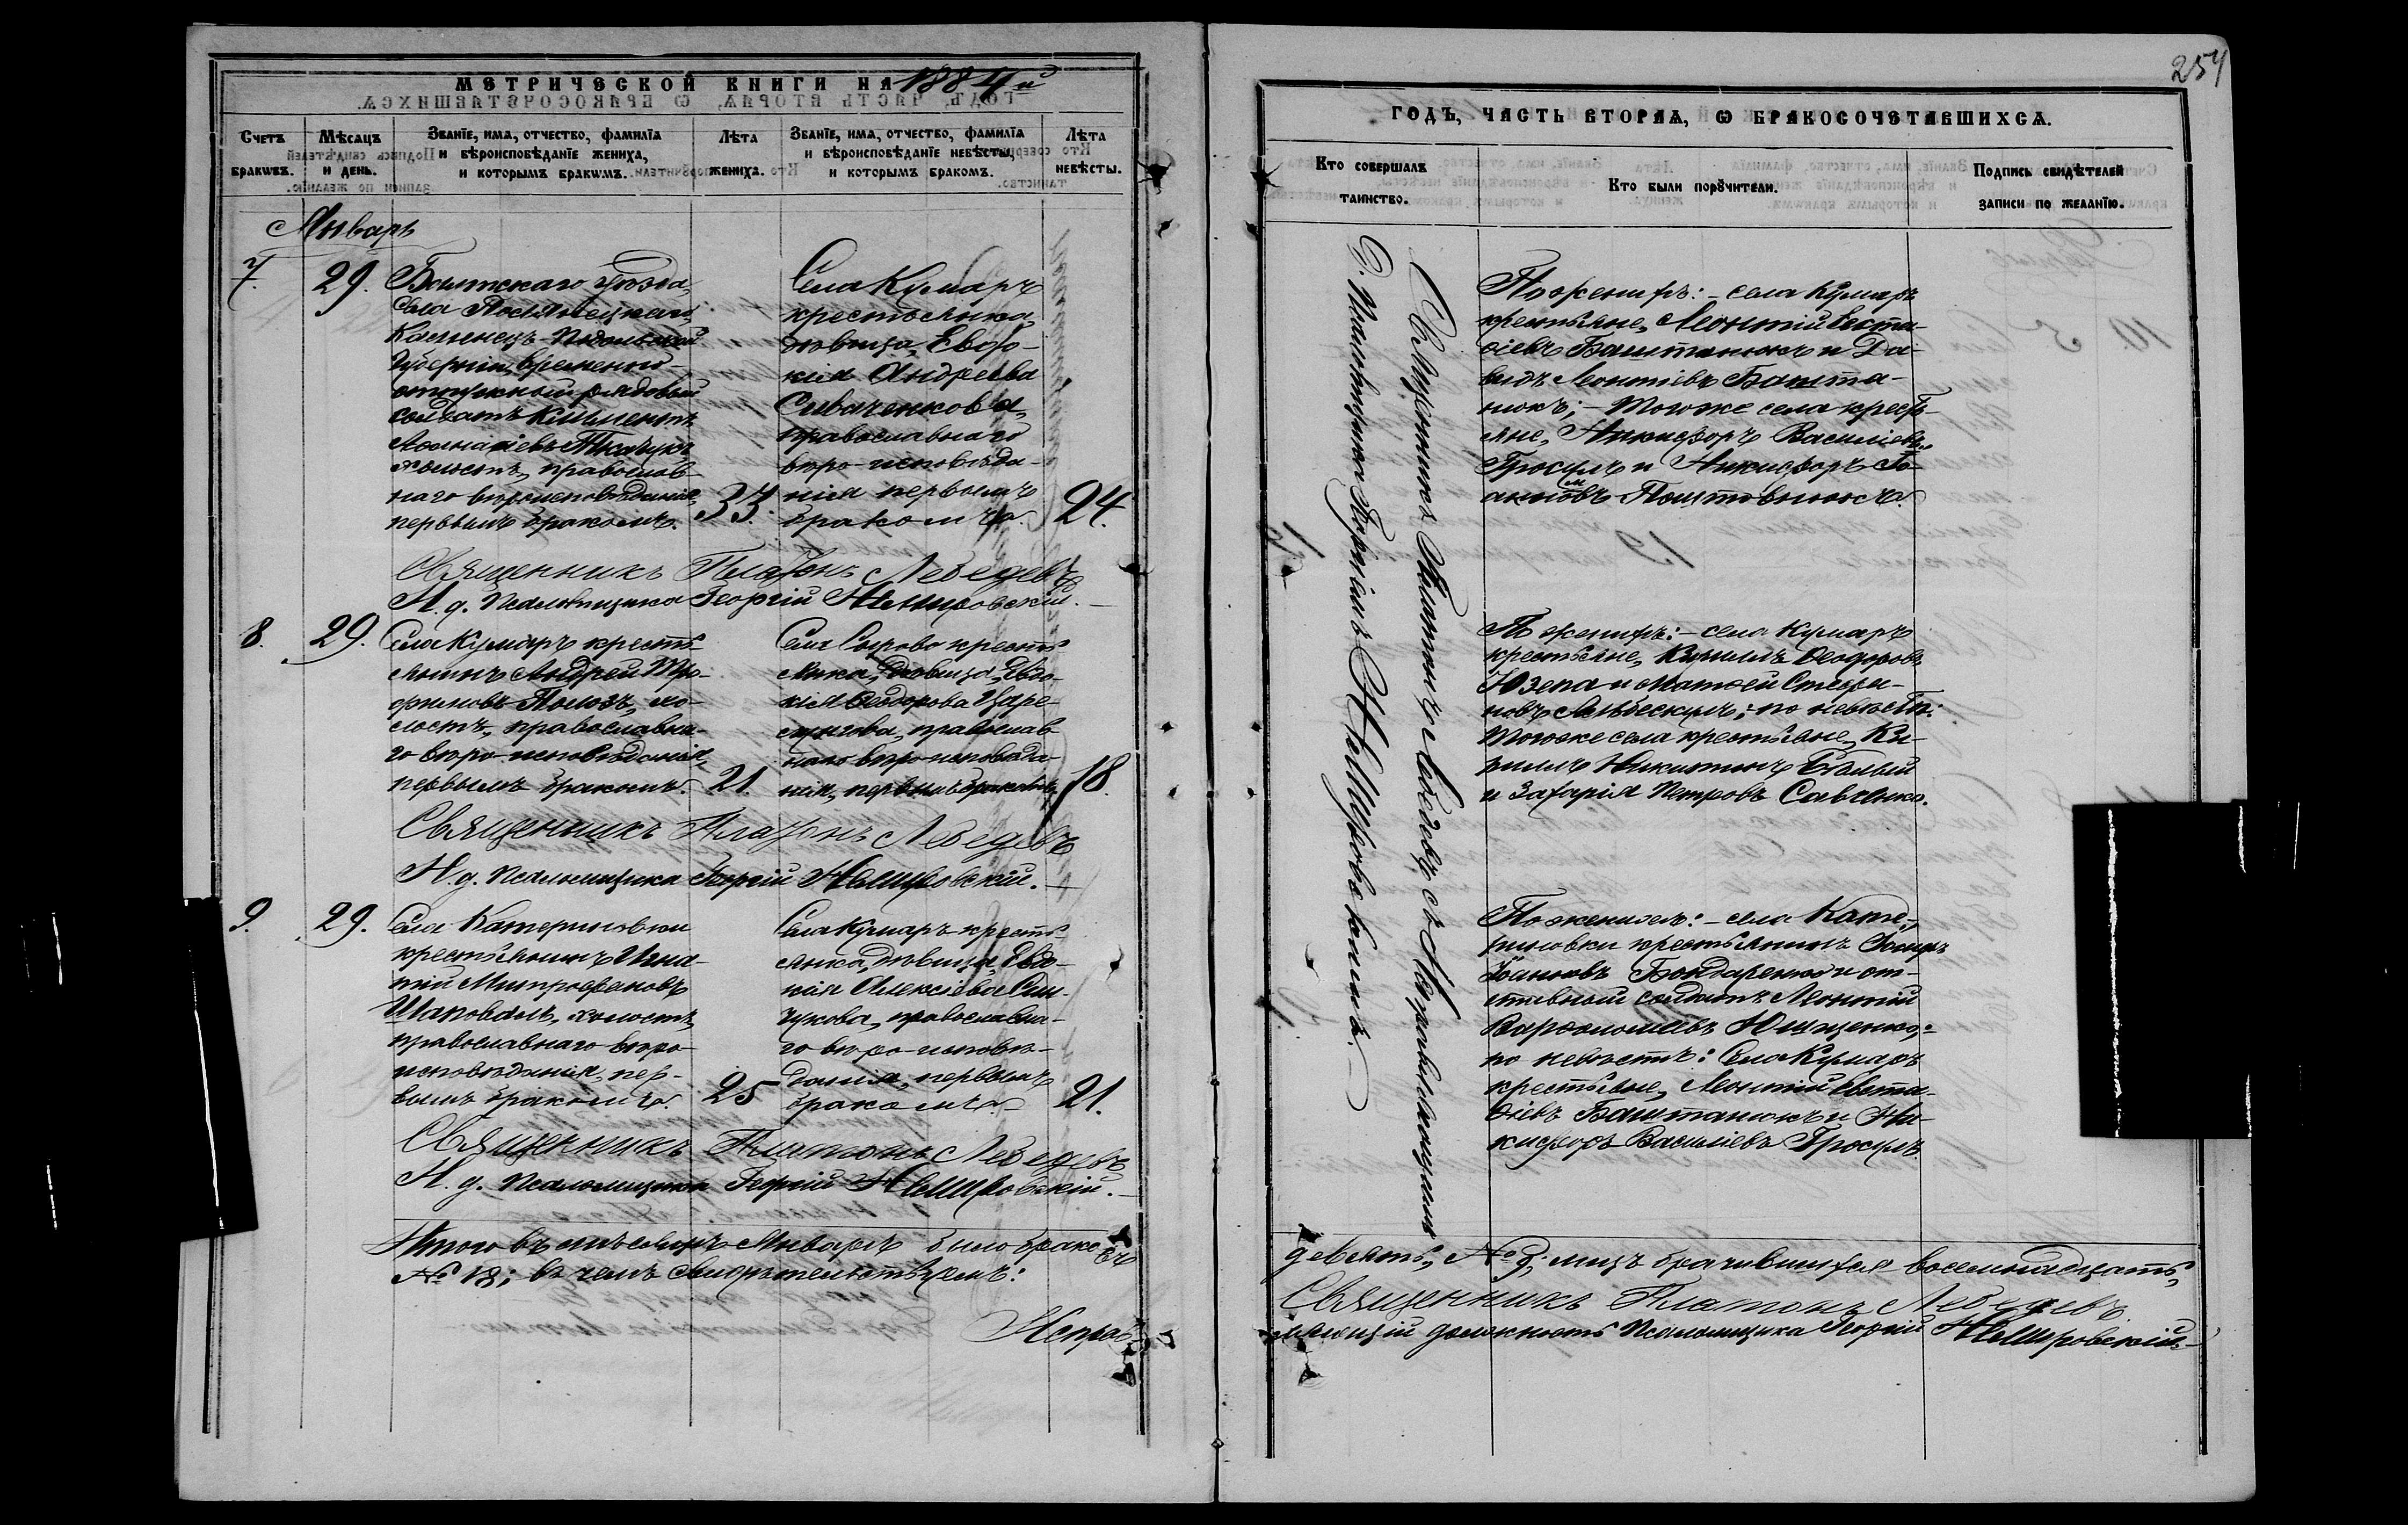 МЕТРИЧЕСКОЙ КНИГИ НА 1884й
Счетъ браковъ.
Мѣсяцъ и день.
Званіе, имя, отчество, фамилія
и вѣроисповѣданіе жениха,
и которымъ бракомъ.
Лѣта жениха.
Званіе, имя, отчество, фамилія
и вѣроисповѣданіе невѣсты,
и которымъ бракомъ.
Лѣта невѣсты.
Январь
7.
29.
Балтскаго уѣзда,
Села
Каменецъ-Подольской
Губерніи, временно-
отпускный рядовой
солдатъ Климентъ
холостъ, православ-
наго вѣроисповѣданія,
первымъ бракомъ.
33.
Села Кумаръ
крестьянка,
дѣвица, Евдо-
кія Андреева
Сиваченкова,
православнаго
вѣро-исповѣда-
нія первымъ
бракомъ.
24.
Священникъ Платонъ Лебедевъ
И. д. Псаломщика Георгій Немировскій.
8.
29.
Села Кумаръ кресть-
янинъ Андрей Тро-
фимовъ хо-
лостъ, православна-
го вѣро-исповѣданія,
первымъ бракомъ.
21.
Села Сырово кресть-
янка, дѣвица, Евдо-
кія Ѳеодорова
православ-
наго вѣро-исповѣда-
нія, первымъ бракомъ,
18.
Священникъ Платонъ Лебедевъ
И. д. Псаломщика Георгій Немировскій.
9.
29.
Села Катериновки
крестьянинъ Игна-
тій Митрофановъ
Шаповалъ, холостъ,
православнаго вѣро-
исповѣданія, пер-
вымъ бракомъ.
25
Села Кумаръ кресть-
янка, дѣвица, Евдо-
кія Алексіева
православна-
го вѣро-исповѣ-
данія, первымъ
бракомъ.
21.
Священникъ Платонъ Лебедевъ
И. д. Псаломщика Георгій Немировскій.
Итого въ мѣсяцѣ Январѣ было браковъ
№ 18; въ чемъ свидѣтельствуемъ:
Исправ-
254
ГОДЪ, ЧАСТЬ ВТОРАЯ, Ѡ БРАКОСОЧЕТАВШИХСЯ.
Кто совершалъ таинство.
Кто были поручители.
Подпись свидѣтелей
записи по желанію.
Священникъ Платонъ Лебедевъ съ Исправляющимъ
д. Псаломщика Георгіемъ Немировскимъ.
По женихѣ: - села Кумаръ
крестьяне, Леонтій Евста-
ѳіевъ Баштанюкъ и Да-
видъ Леонтіевъ Башта-
нюкъ; - Тогоже села кресть-
яне, Никифоръ Василіевъ
Гросулъ и Никифоръ
По женихѣ: - села Кумаръ
крестьяне, Кириллъ Ѳеодоровъ
Юзепа и Матѳей Стефа-
новъ по невѣстѣ:
Тогоже села крестьяне, Ки-
риллъ Никитинъ
и Захарія Петровъ Савченко.
По женихѣ: - села Кате-
риновки крестьянинъ Іосифъ
Іоанновъ Бондаренко и от-
ставный солдатъ Леонтій
Варѳоломеевъ Ющенко;
по невѣстѣ: Села Кумаръ
крестьяне, Леонтій Евста-
ѳіевъ Баштанюкъ и Ни-
кифоръ Василіевъ Гросулъ.
девять, № 9, лицъ брачившихся восемнадцать,
Священникъ Платонъ Лебедевъ
ляющій должность Псаломщика Георгій Немировскій.